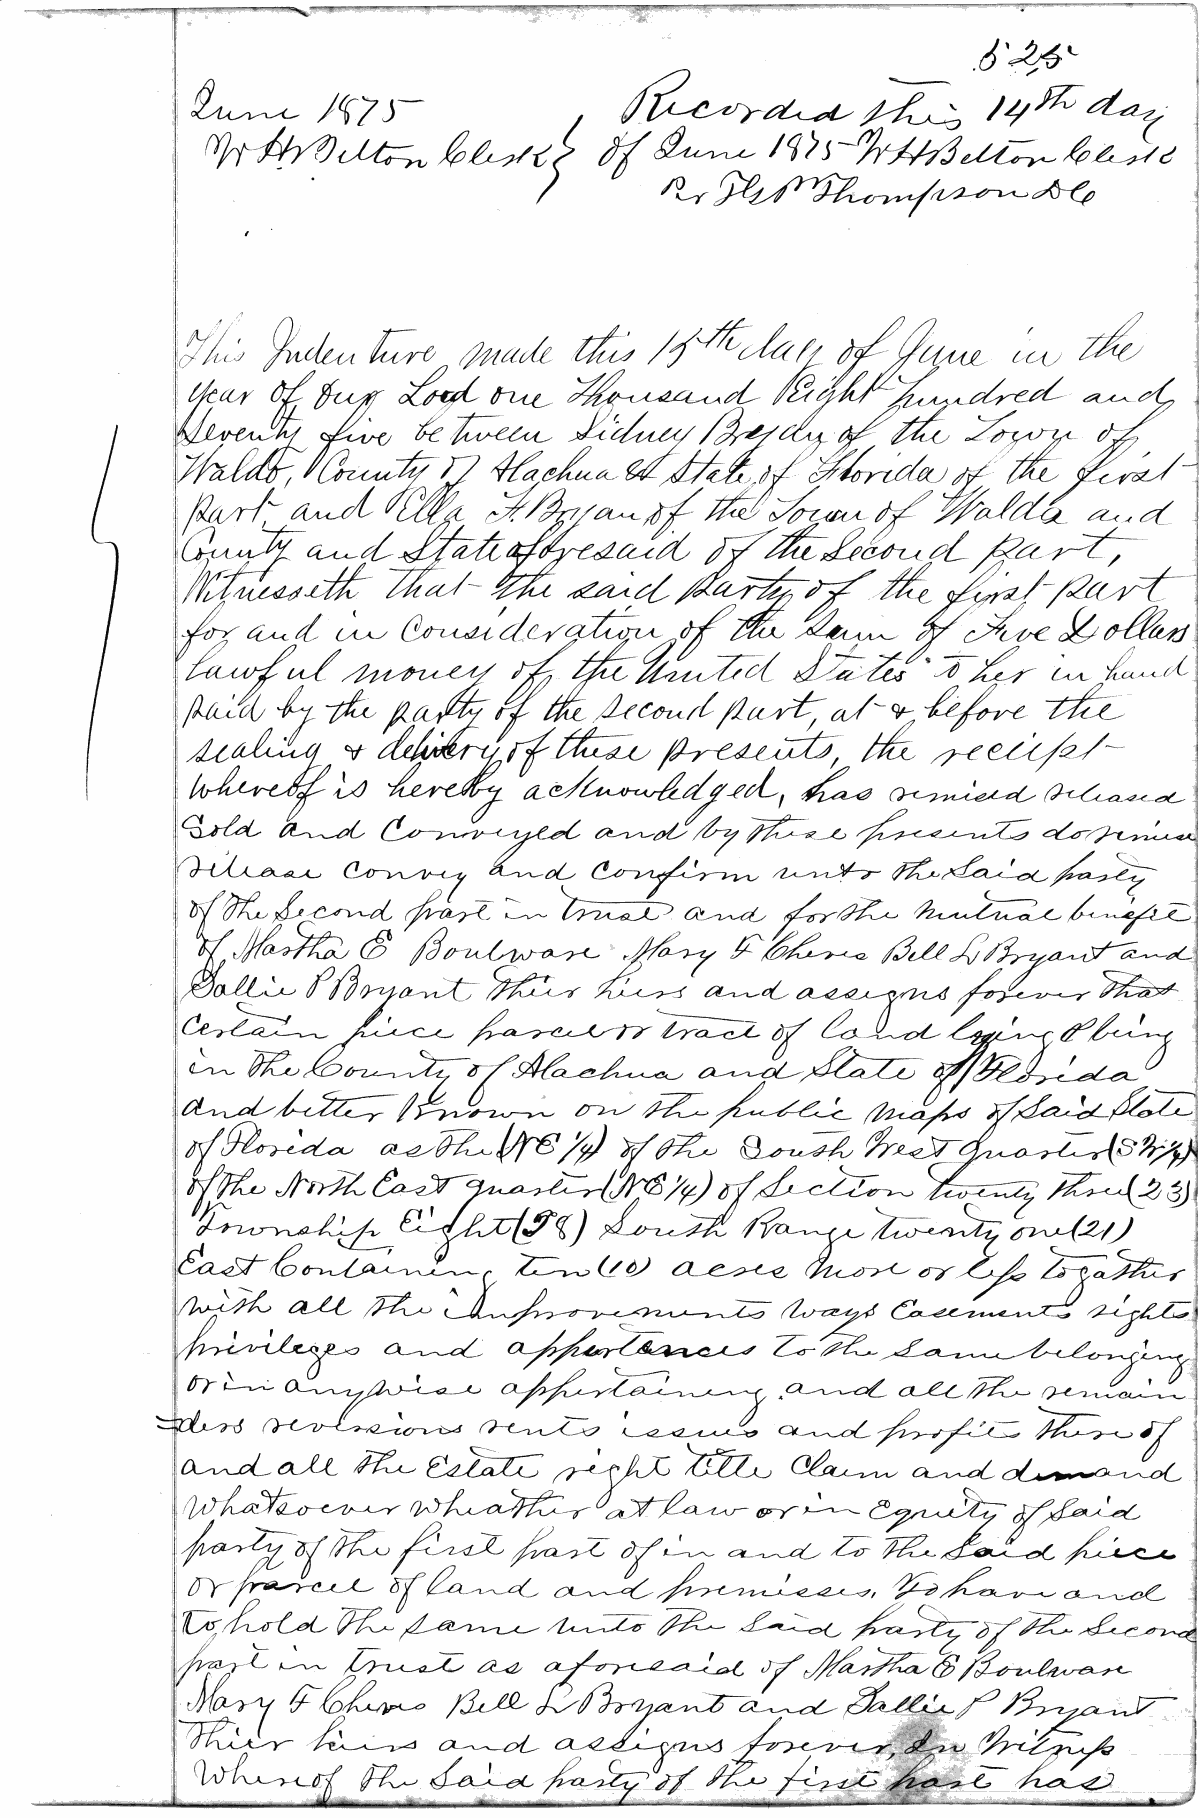 525
June 1875
W H Belton Clerk
Recorded this 14th day
of June 1875 W H Belton Clerk
Pr Thompson D C
This Indenture made this 15th day of June in the
year of our Lord one Thousand Eight hundred and
seventy five between Sidney of the Town of
Waldo, County of Alachua & State of Florida of the first
part and Ella F. Bryan of the Town of Waldo and
County and State aforesaid of the second part,
Witnesseth that the said party of the first part
for and in consideration of the sum of Five Dollars
lawful money of the United States to her in hand
paid by the party of the second part, at & before the
sealing & delivery of these presents, the reciept
whereof is hereby acknowledged, has remised released
Sold and Conveyed and by these presents do remise
release convey and confirm unto the Said party
of the Second part in trust and for the mutual benefit
of Martha E Boulware Mary F Cheves Bell L Bryant and
Sallie P Bryant thier hiers and assigns forever that
certain piece parcel or tract of land lying & being
in the County of Alachua and State of Florida
and better Known on the public maps of Said State
of Florida as the (NE 1/4) of the South West quarter (SW 1/4)
of the North East quarter (NE 1/4) of Section twenty three (23)
Township Eight (T8) South Range twenty one (21)
East Containing ten (10) acres more or less togather
with all the improvements ways Easements rights
privileges and appertances to the same belonging
or in anywise appertaining and all the remain
=ders reversions rents issues and profits there of
and all the Estate right title Claim and demand
whatsoever wheather at law or in Equity of Said
party of the first part of in and to the Said piece
or parcel of land and premisses. To have and
to hold the same unto the Said party of the Second
part in trust as aforesaid of Martha E Boulware
Mary F Cheves Bell L Bryant and Sallie P Bryant
thier hiers and assigns forever, In Witness
Whereof the Said party of the first part has